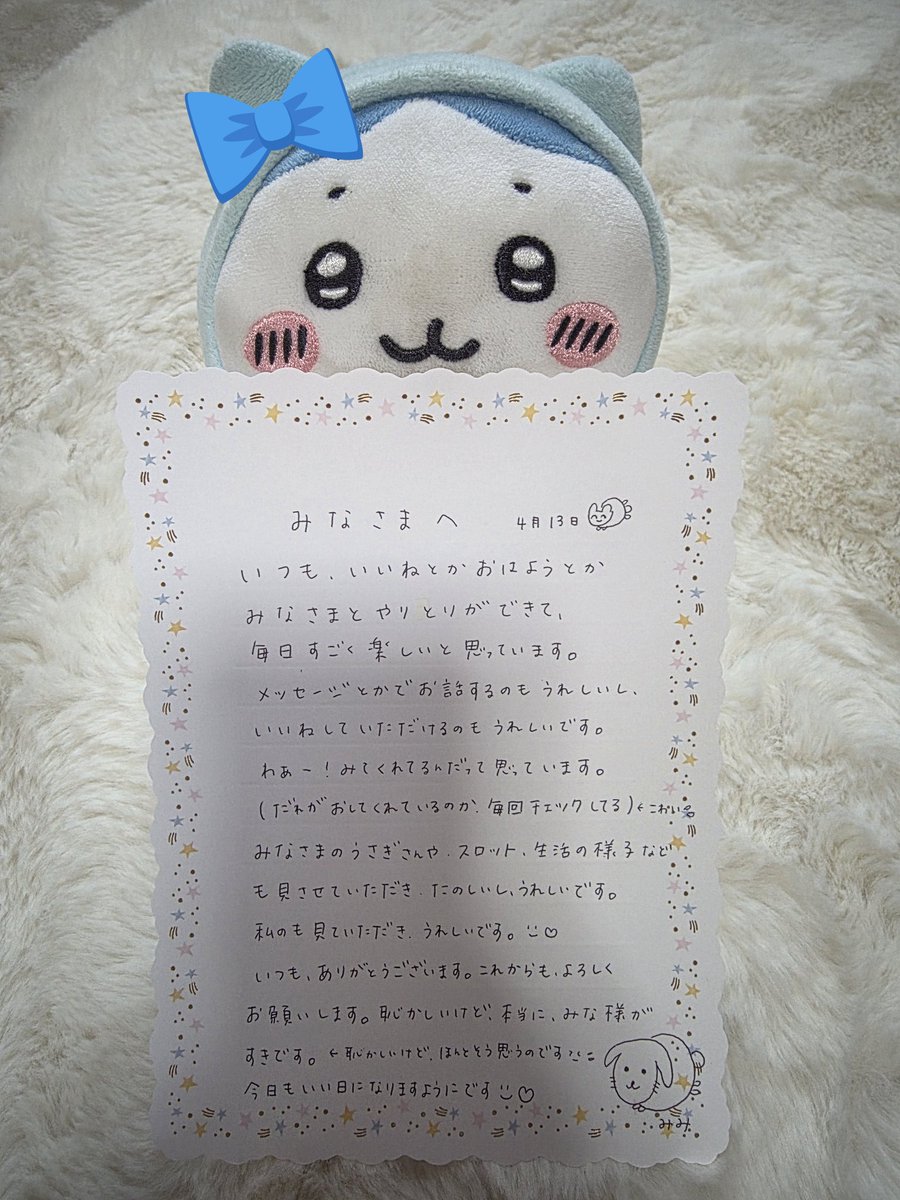 みなさまへ 4月13日
いつも、いいねとかおはようとか
みなさまとやりとりができて、
毎日すごく楽しいと思っています。
メッセージとかでお話するのもうれしいし、
いいねしていただけるのもうれしいです。
わぁー!みてくれてるんだって思っています。
(だれがおしてくれているのか、毎回チェックしてる)←こわい
みなさまのうさぎさんや、スロット、生活の様子など
も見させていただき、たのしいし、うれしいです。
私のも見ていただき、うれしいです。
いつも、ありがとうございます。これからも、よろしく
お願いします。恥かしいけど、本当に、みな様が
すきです。←恥かしいけど、ほんとそう思うのです
今日もいい日になりますようにです
みみ